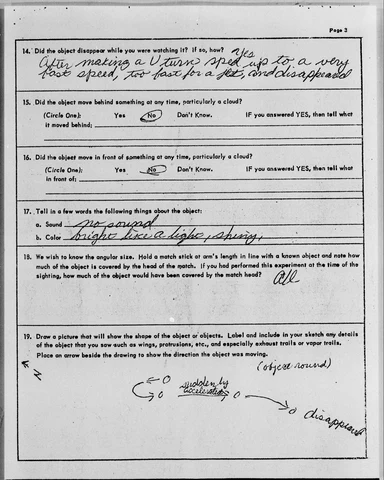 Page 3
14. Did the object disappear while you were watching it? If so, how? Yes
After making a U turn sped up to a very
fast speed, too fast for a jet, and disappeared
15. Did the object move behind something at any time, particularly a cloud?
(Circle One): Yes No Don't Know. IF you answered YES, then tell what
it moved behind:
16. Did the object move in front of something at any time, particularly a cloud?
(Circle One): Yes No Don't Know. IF you answered YES, then tell what
in front of:
17. Tell in a few words the following things about the object:
a. Sound no sound
b. Color bright like a light, shiny,
18. We wish to know the angular size. Hold a match stick at arm's length in line with a known object and note how
much of the object is covered by the head of the match. If you had performed this experiment at the time of the
sighting, how much of the object would have been covered by the match head? All
19. Draw a picture that will show the shape of the object or objects. Label and include in your sketch any details
of the object that you saw such as wings, protrusions, etc., and especially exhaust trails or vapor trails.
Place an arrow beside the drawing to show the direction the object was moving.
(object round)
N
sudden
acceleration
disappeared